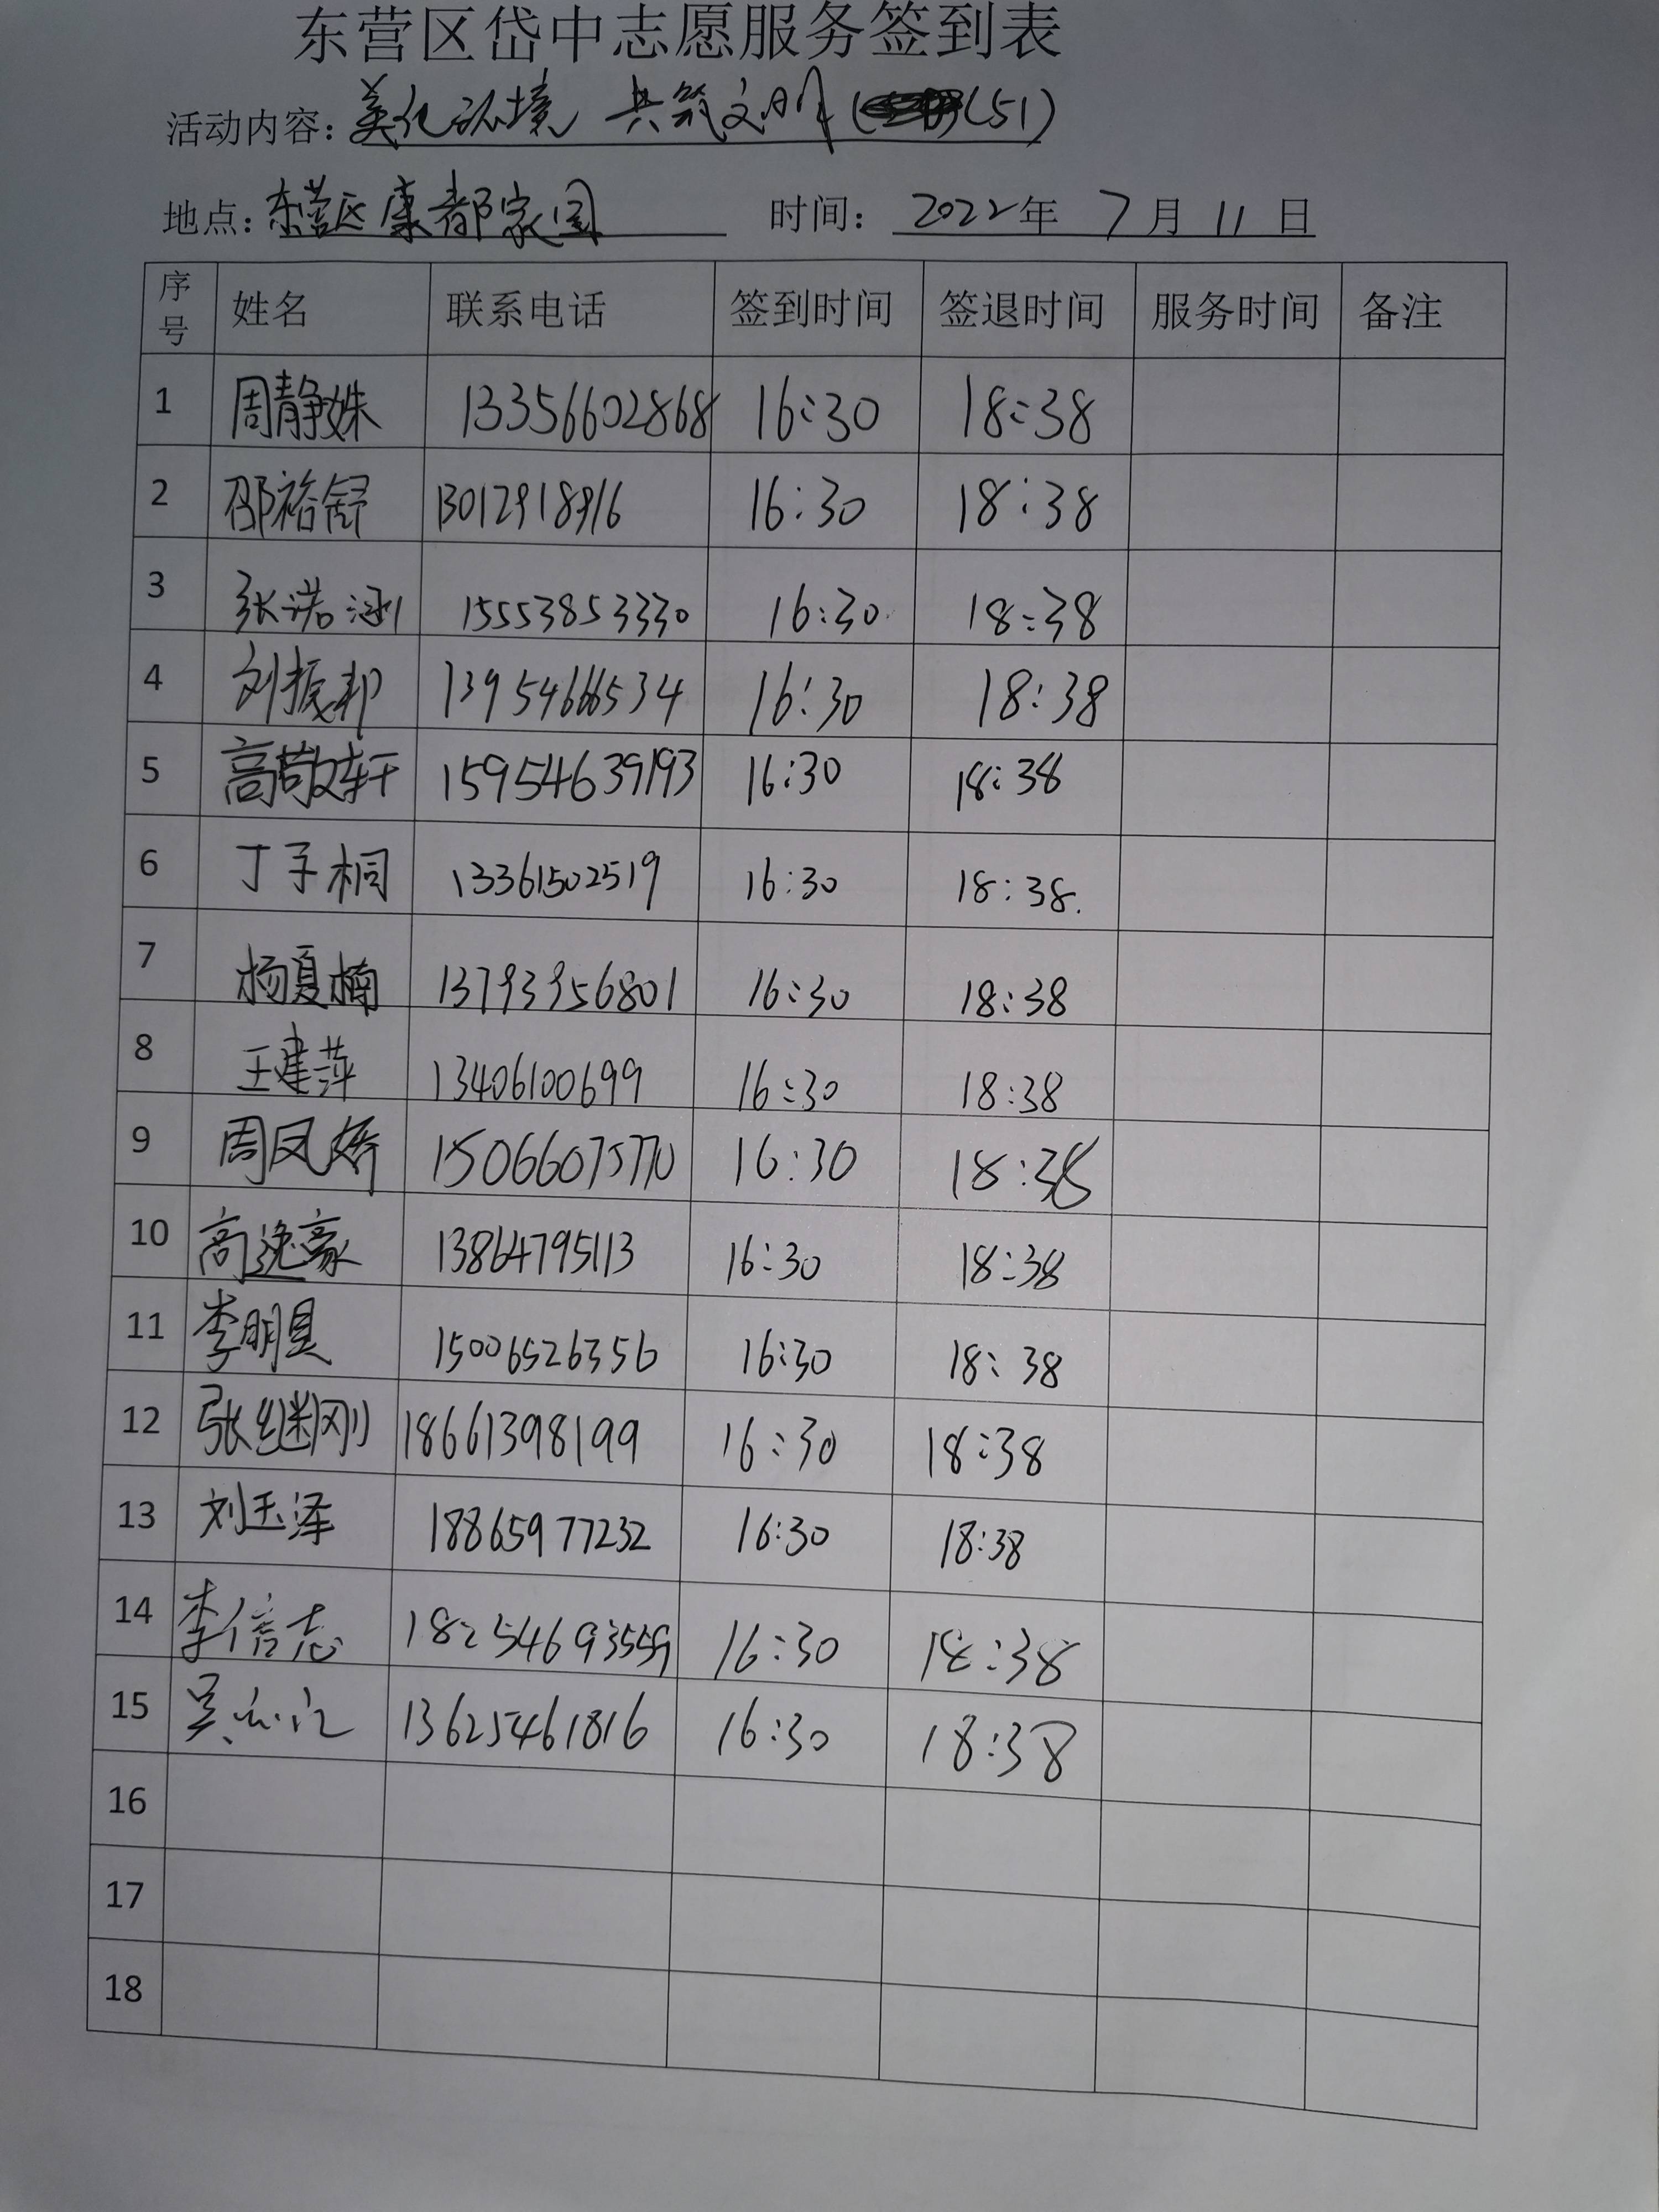 东营区岱中志愿服务签到表
活动内容：美化环境 共筑文明 (51)
地点：东营区康都家园 时间：2022年 7月 11日
序号 姓名 联系电话 签到时间 签退时间 服务时间 备注
1 周静姝 13356602868 16:30 18:38
2 邵裕舒 13012918916 16:30 18:38
3 张诺涵 15553853330 16:30 18:38
4 刘振邦 13954666534 16:30 18:38
5 高敬轩 15954639193 16:30 18:38
6 丁子桐 13361502519 16:30 18:38.
7 杨夏楠 13793956801 16:30 18:38
8 王建萍 13406100699 16:30 18:38
9 周凤娇 15066075770 16:30 18:38
10 高逸豪 13864795113 16:30 18:38
11 李明 15006526356 16:30 18:38
12 张继刚 18661398199 16:30 18:38
13 刘玉泽 18865977232 16:30 18:38
14 李信志 18254693559 16:30 18:38
15 吴 13625461816 16:30 18:38
16
17
18